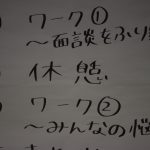 ワーク①
～面談をふり
休憩
ワーク②
～みんなの悩